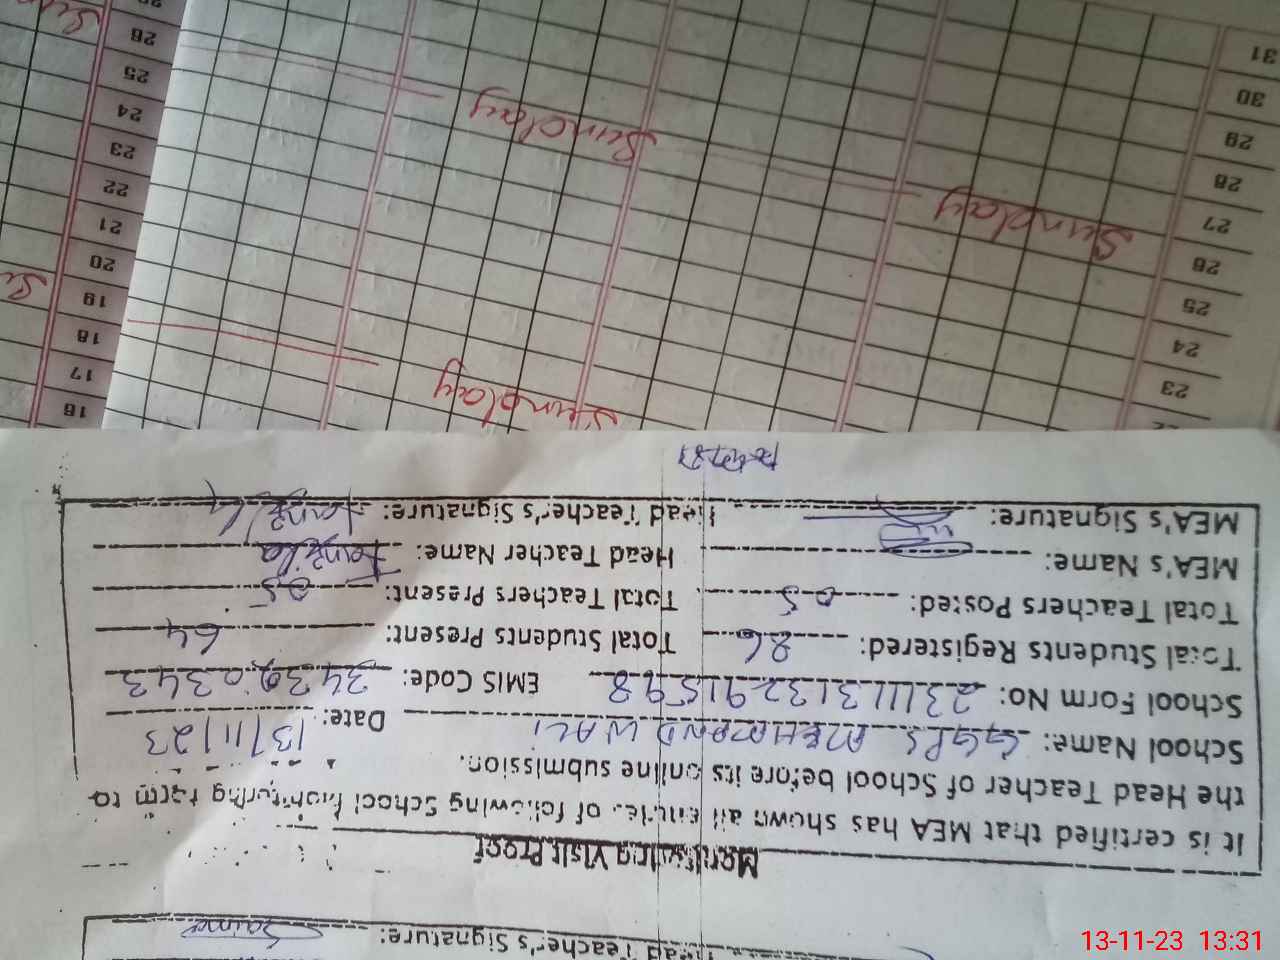 Monitoring Visit Proof
It is certified that MEA has shown all entries of following School Monitoring form to
the Head Teacher of School before its online submission.
School Name: GGPS MEHMAND WALI Date: 13/11/23
School Form No: 231113132291598 EMIS Code: 34390343
Total Students Registered: 86 Total Students Present: 64
Total Teachers Posted: 05 Total Teachers Present: 05
MEA's Name: Head Teacher Name: Tanzila
MEA's Signature: Head Teacher's Signature: Tanzila
Head Teacher's Signature: Saima
Sunday
Sunday
Sunday
16
17
18
19
20
21
22
23
24
25
26
23
24
25
26
27
28
29
30
31
13-11-23 13:31